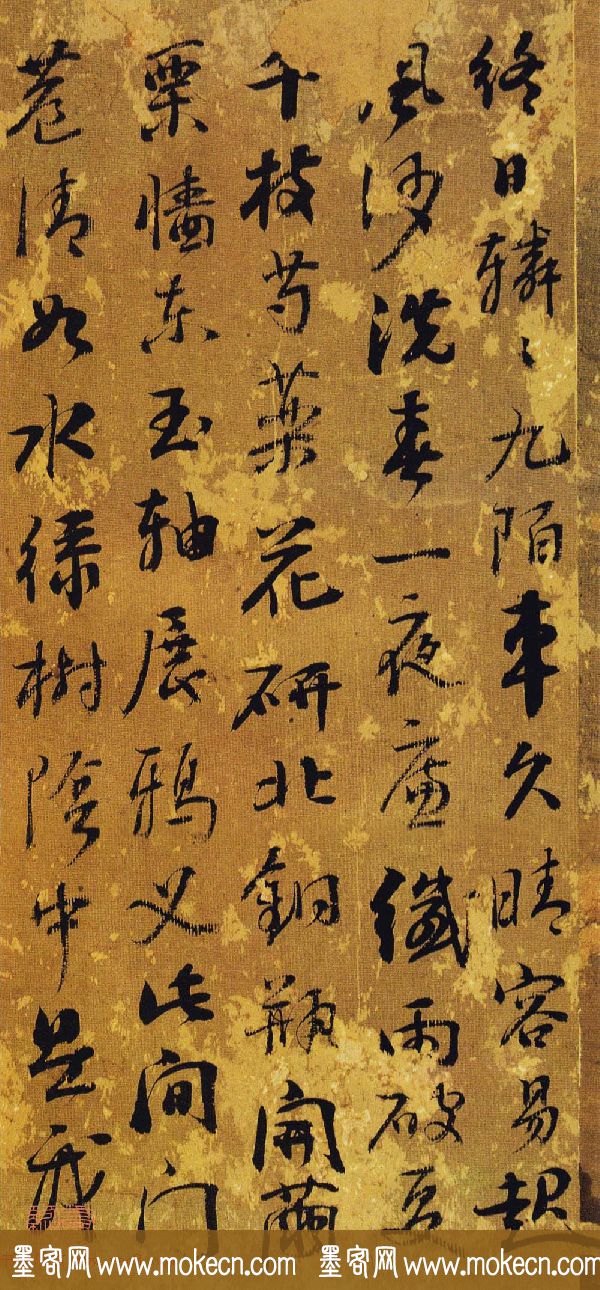 終日轔〻九陌車久晴容易起
風沙洗春一夜廉纖雨破豆
千枝芍藥花研北銅瓶開繭
栗墻東玉軸展鴉叉此間門
巷清如水綠樹陰中是我
墨客网 www.mokecn.com 墨客网 www.mokecn.com